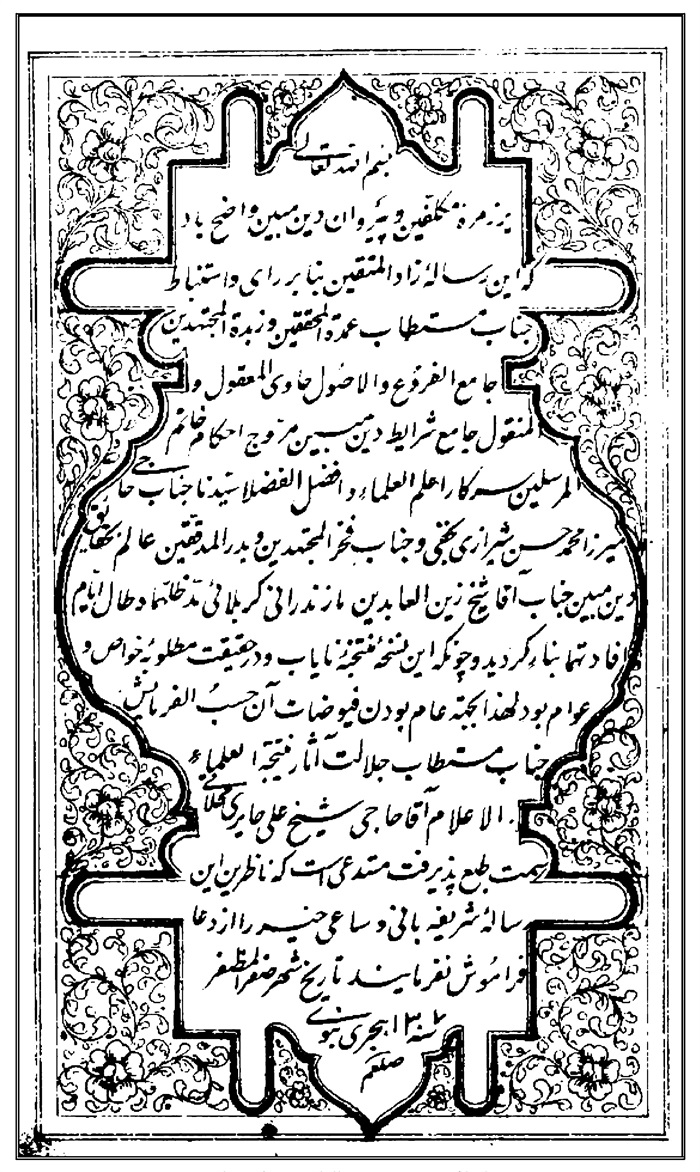 بسم الله تعالی
بر زمرهٔ مکلّفین و پیروان دین مبین واضح باد
که این رسالهٔ زاد المتقین بنا بر رای و استنباط
جناب مستطاب عمدة المحققین و زبدة المجتهدین
جامع الفروع والاصول حاوی المعقول و
المنقول جامع شرایط دین مبین مروج احکام خاتم
المرسلین سرکار اعلم العلماء و افضل الفضلا سیدنا جناب حاجی
میرزا محمد حسن شیرازی نجفی و جناب فخر المجتهدین و بدر المدققین عالم بحقایق
دین مبین جناب آقا شیخ زین العابدین مازندرانی کربلائی مدّ ظلّهما و طال ایّام
افادتهما بناء کردید و چونکه این نسخهٔ منتخبهٔ نایاب و در حقیقت مطلوبه خواص و
عوام بود لهذا بجهة عام بودن فیوضات آن حسبُ الفرمایش
جناب مستطاب جلالت آثار نتیجة العلماء
الاعلام آقا حاجی شیخ علی حایری محلاتی
سمت طبع پذیرفت مستدعی است که ناظرین این
رسالهٔ شریفه بانی و ساعی خیر را از دعا
فراموش نفرمایند تاریخ شهر صفر المظفر
هجری نبوی
صلعم